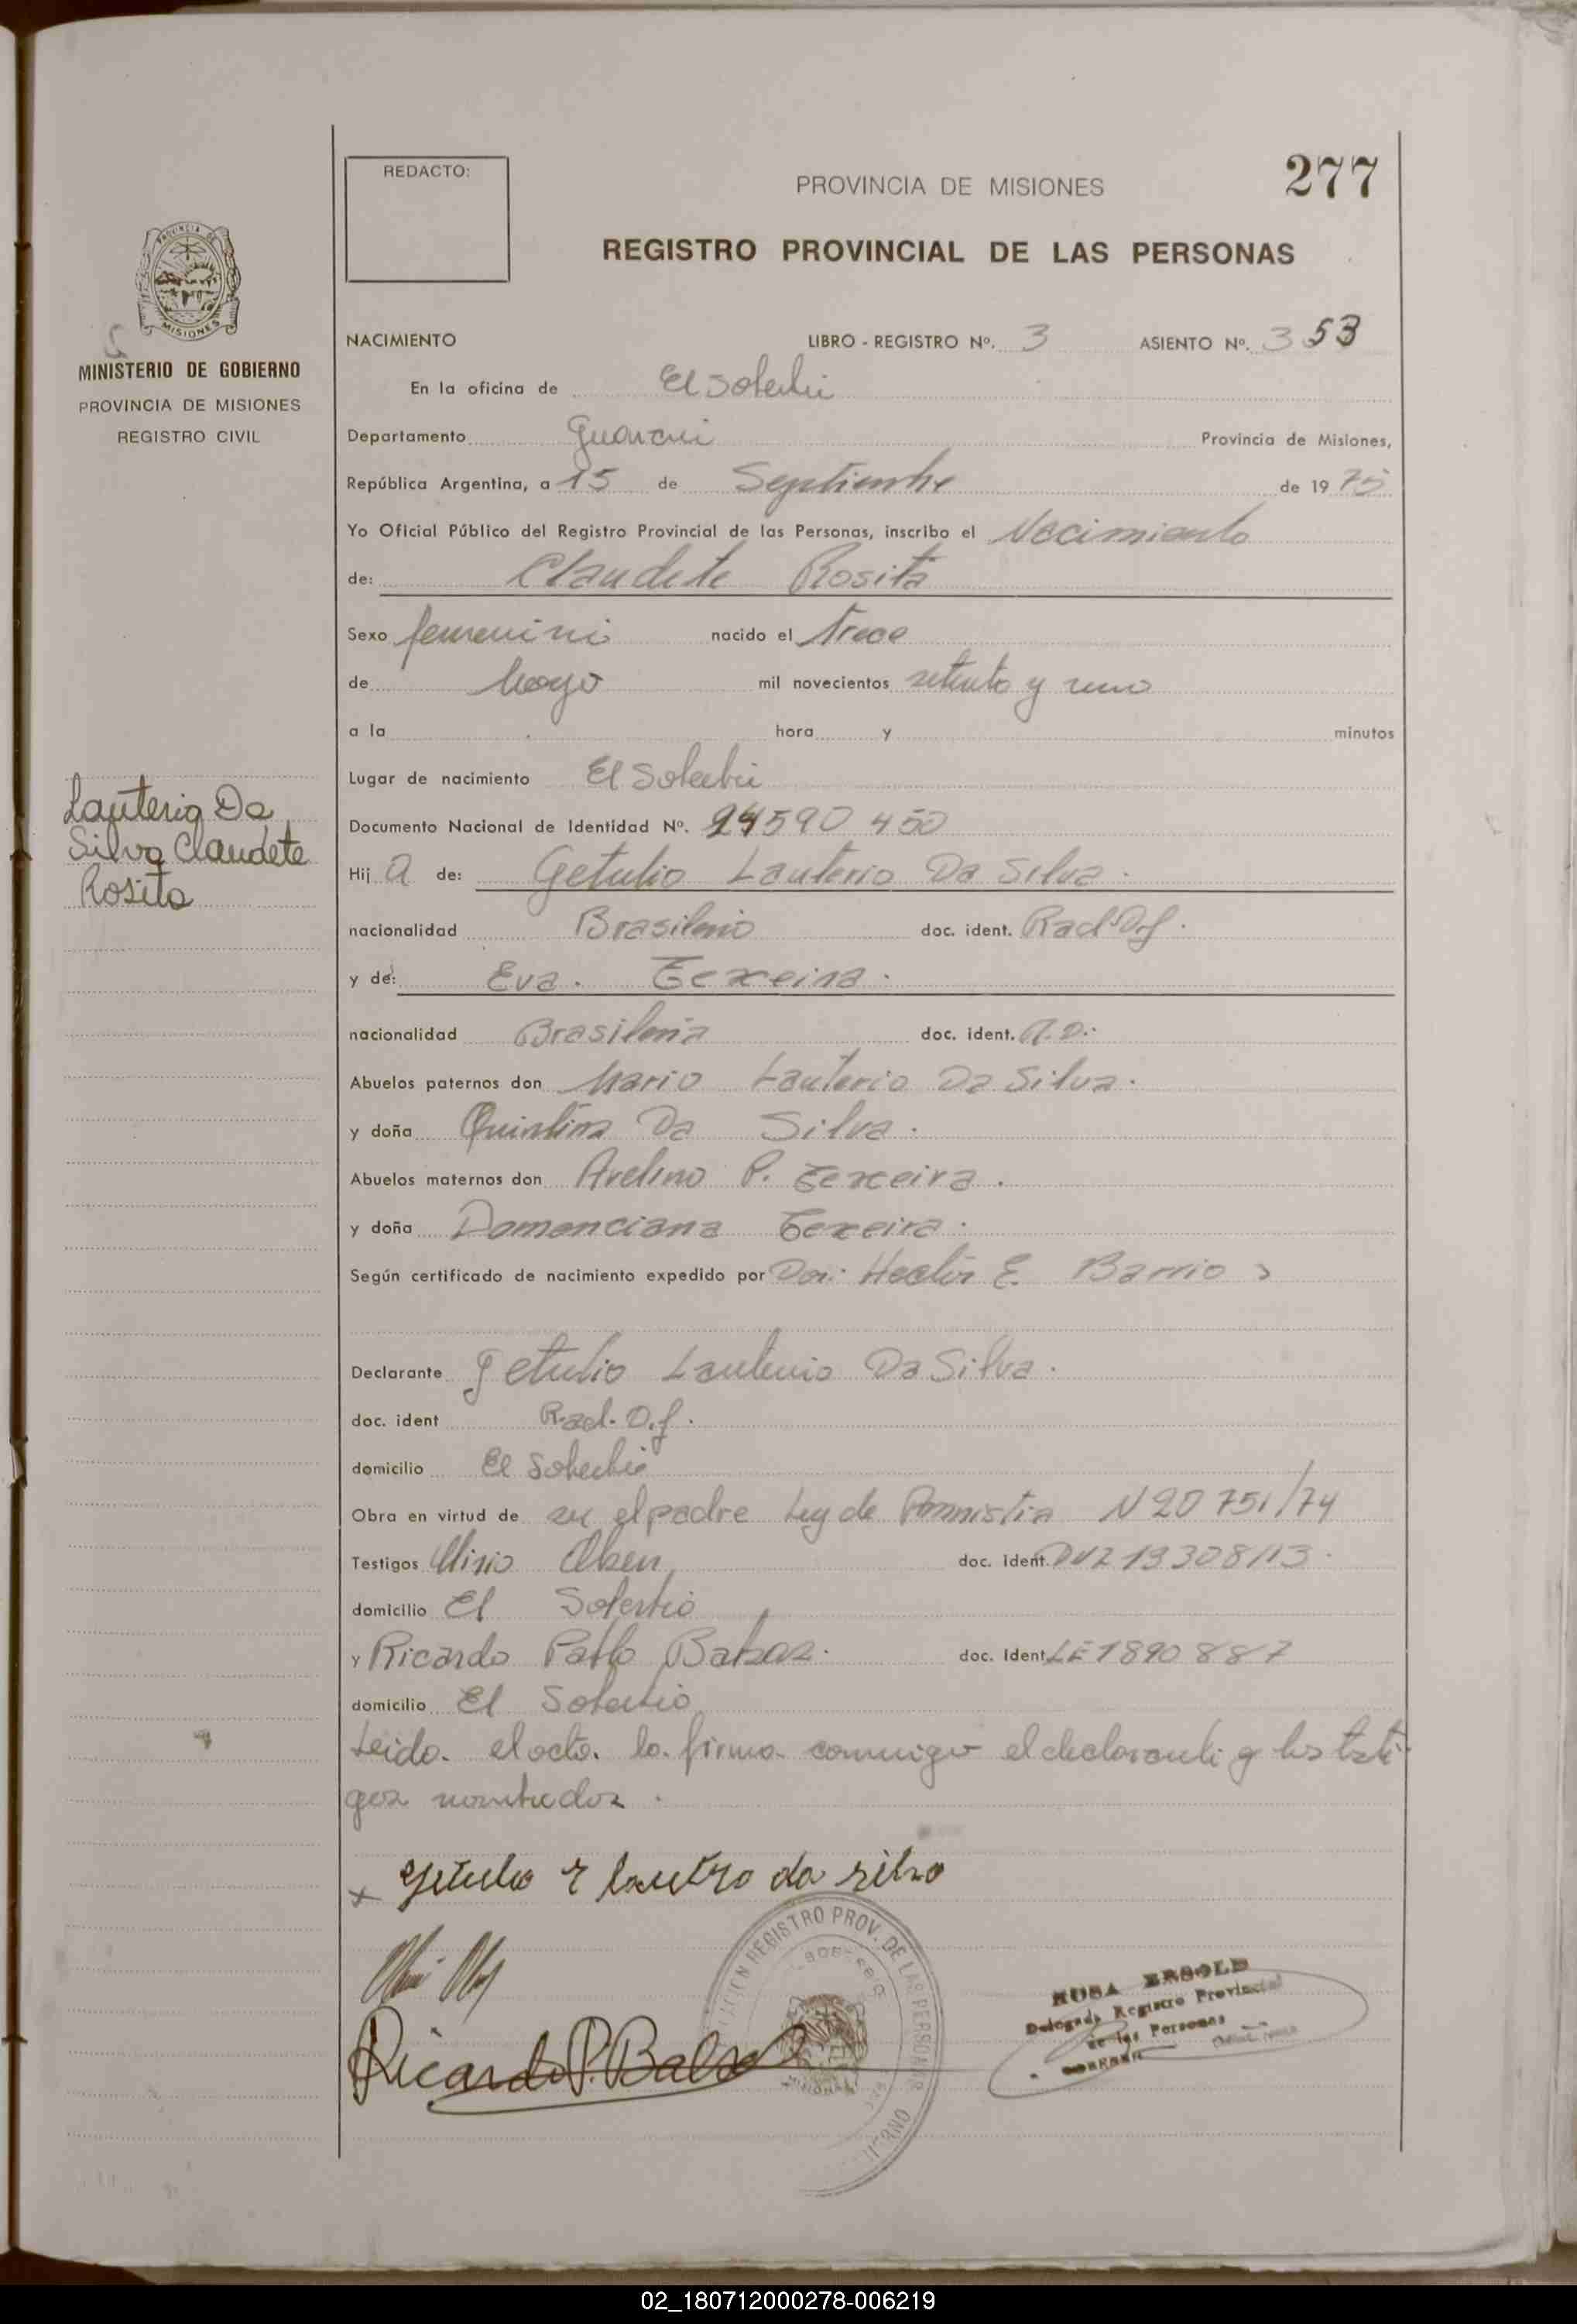 277
REDACTO:
PROVINCIA DE MISIONES
REGISTRO PROVINCIAL DE LAS PERSONAS
PROVINCIA DE
MISIONES
MINISTERIO DE GOBIERNO
PROVINCIA DE MISIONES
REGISTRO CIVIL
NACIMIENTO LIBRO - REGISTRO Nº. 3 ASIENTO Nº. 353
En la oficina de El Soberbio
Departamento Guarani Provincia de Misiones,
República Argentina, a 15 de Septiembre de 1975
Yo Oficial Público del Registro Provincial de las Personas, inscribo el Nacimiento
de: Claudete Rosita
Sexo femenino nacido el trece
de Mayo mil novecientos setenta y uno
a la hora y minutos
Lugar de nacimiento El Soberbio
Lauterio Da
Silva Claudete
Rosita
Documento Nacional de Identidad Nº. 24590 450
Hij a de: Getulio Lauterio Da Silva.
nacionalidad Brasileño doc. ident. Rad. Of.
y de: Eva. Texeira.
nacionalidad Brasileña doc. ident.
Abuelos paternos don Mario Lauterio Da Silva.
y doña Quintina Da Silva.
Abuelos maternos don Avelino P. Texeira.
y doña Domenciana Texeira.
Según certificado de nacimiento expedido por Hector E. Barrios
Declarante Getulio Lauterio Da Silva.
doc. ident Rad. O.f.
domicilio El Soberbio
Obra en virtud de ser el padre Ley de Amnistia N 20 751/74
Testigos doc. ident. 19308113.
domicilio El Soberbio
y Ricardo Pablo Balzar. doc. Ident LE 1890 887
domicilio El Soberbio
Leido. el acta. la. firma. conmigo el declarante y los testi
gos nombrados.
x Getulio lautro da silva
Ricardo P. Balza
REGISTRO PROV. DE LAS PERSONAS
Delegada Registro Provincial
de las Personas
02_180712000278-006219